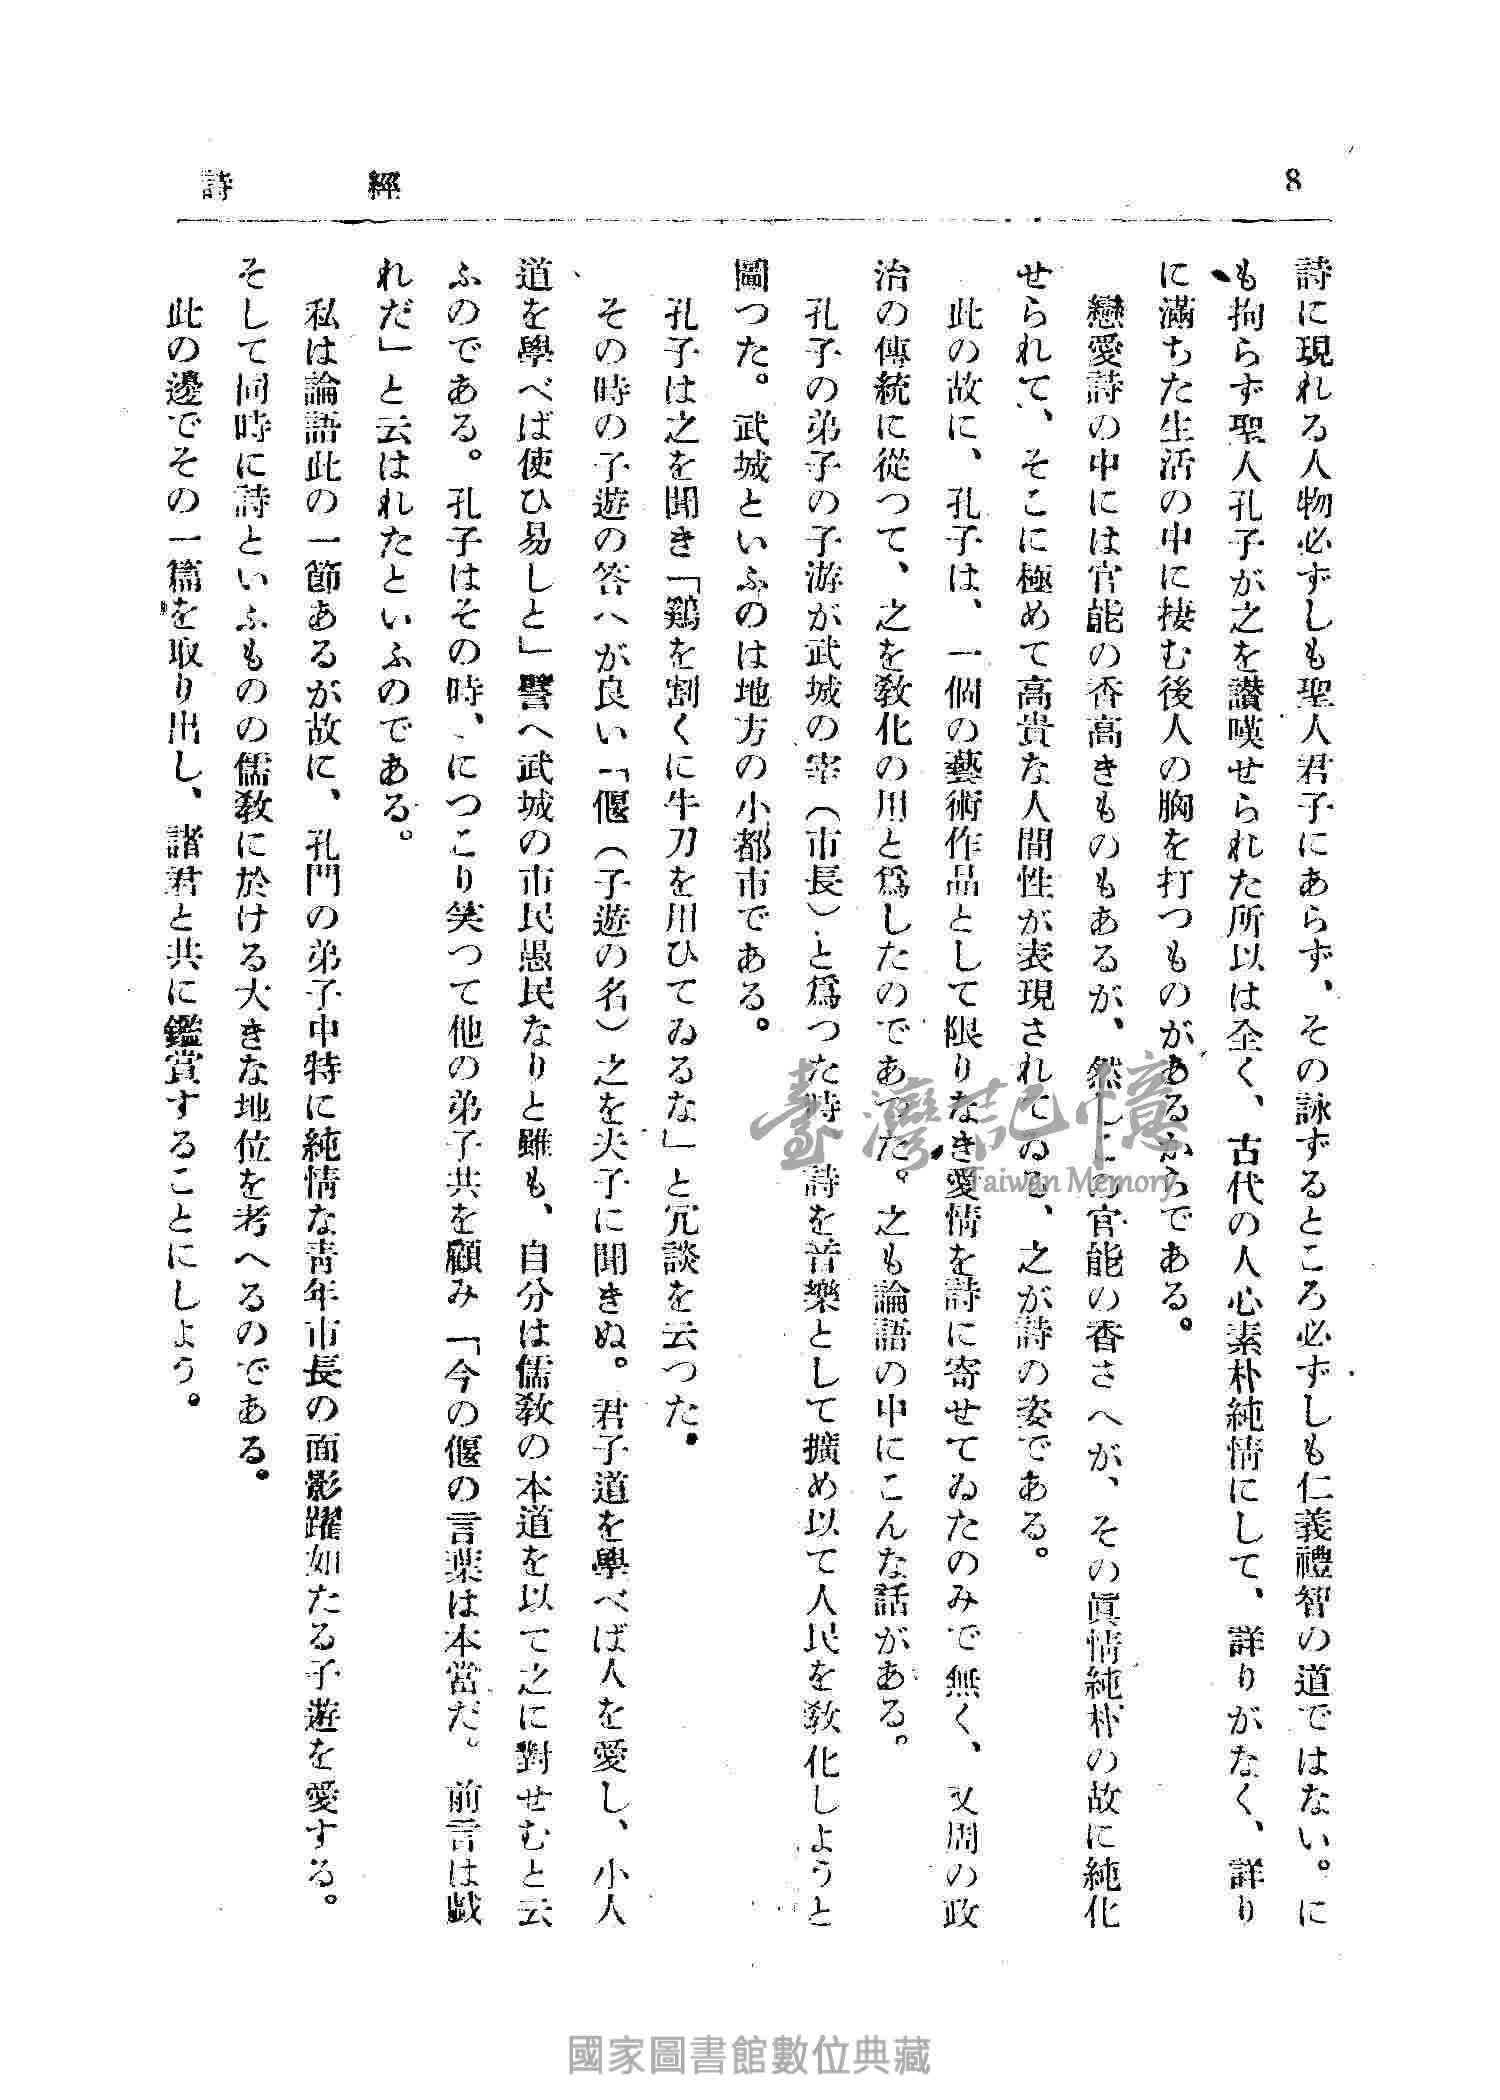 詩經
8
詩に現れる人物必ずしも聖人君子にあらず、その詠ずるところ必ずしも仁義禮智の道ではない。に
も拘らず聖人孔子が之を讃嘆せられた所以は全く、古代の人心素朴純情にして、詳りがなく、詳り
に滿ちた生活の中に棲む後人の胸を打つものがあるからである。
戀愛詩の中には官能の香高きものもあるが、然しこの官能の香さへが、その眞情純朴の故に純化
せられて、そこに極めて高貴な人間性が表現されてゐる、之が詩の姿である。
此の故に、孔子は、一個の藝術作品として限りなき愛情を詩に寄せてゐたのみで無く、又周の政
治の傳統に從つて、之を敎化の用と爲したのであつた。之も論語の中にこんな話がある。
孔子の弟子の子游が武城の宰（市長）と爲つた時、詩を音樂として擴め以て人民を敎化しようと
圖つた。武城といふのは地方の小都市である。
孔子は之を聞き「鷄を割くに牛刀を用ひてゐるな」と冗談を云つた。
その時の子遊の答へが良い「偃（子遊の名）之を夫子に聞きぬ。君子道を學べば人を愛し、小人
道を學べば使ひ易しと」譬へ武城の市民愚民なりと雖も、自分は儒敎の本道を以て之に對せむと云
ふのである。孔子はその時、につこり笑つて他の弟子共を顧み「今の偃の言葉は本當だ。前言は戯
れだ」と云はれたといふのである。
私は論語此の一節あるが故に、孔門の弟子中特に純情な靑年市長の面影躍如たる子遊を愛する。
そして同時に詩といふものの儒敎に於ける大きな地位を考へるのである。
此の邊でその一篇を取り出し、諸君と共に鑑賞することにしよう。
臺灣記憶
Taiwan Memory
國家圖書館數位典藏